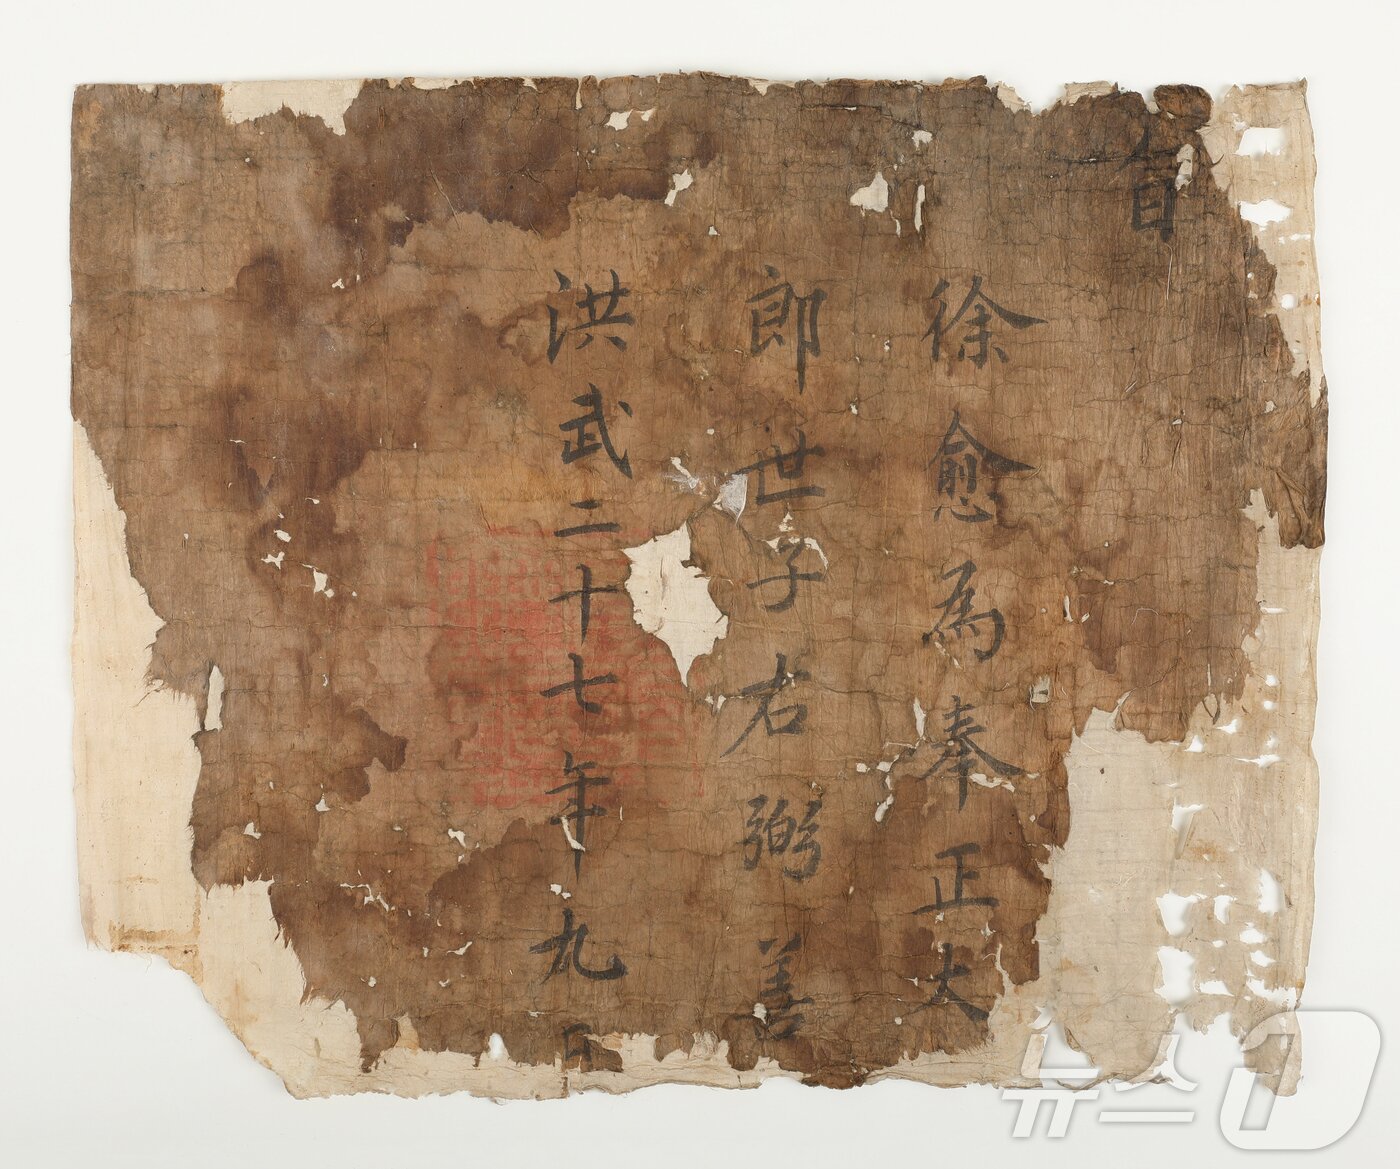 旨
徐愈為奉正大
郎世子右弼善
洪武二十七年九月
뉴스1